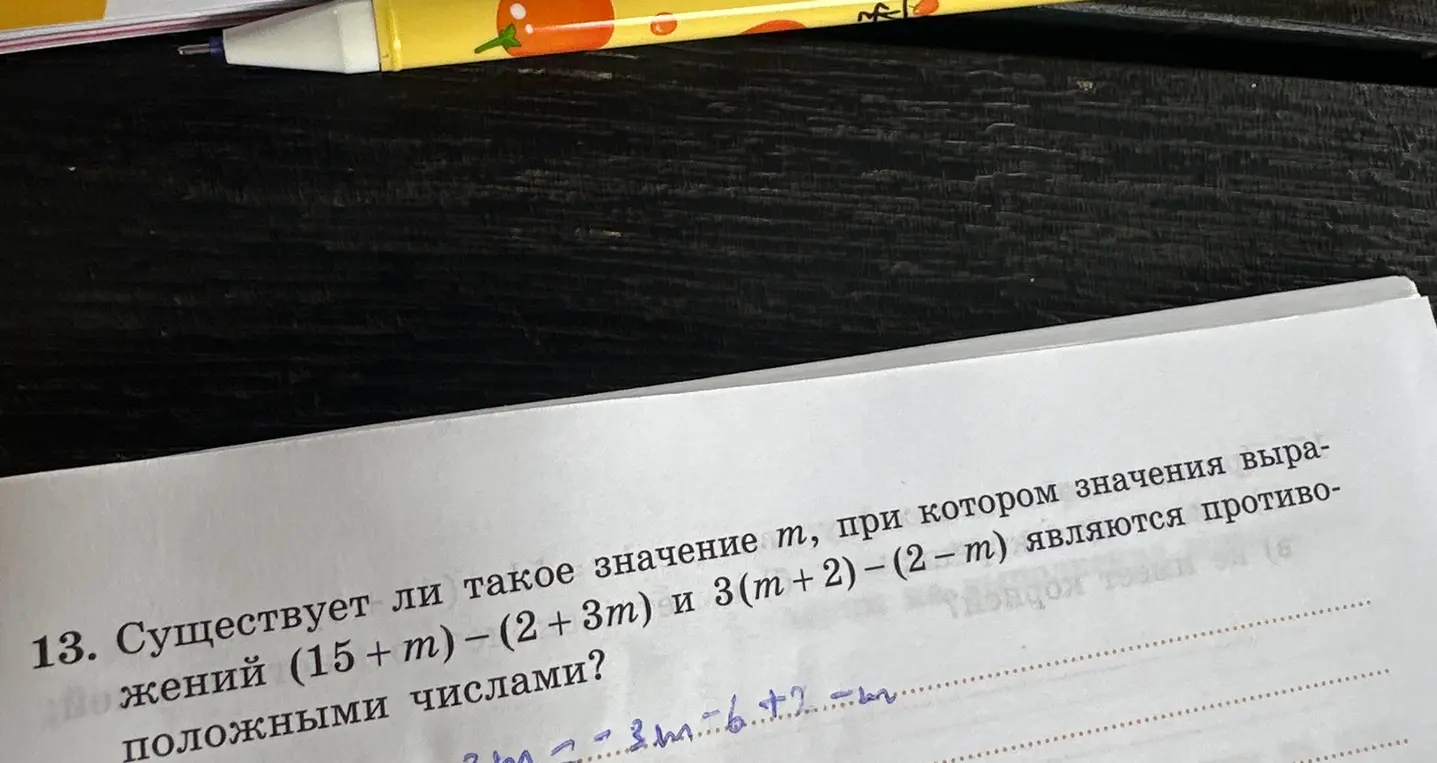 13. Существует ли такое значение m, при котором значения выра-
жений (15 + m) – (2 + 3m) и 3(m + 2) – (2 – m) являются противо-
положными числами?
= -3m-6+2-m